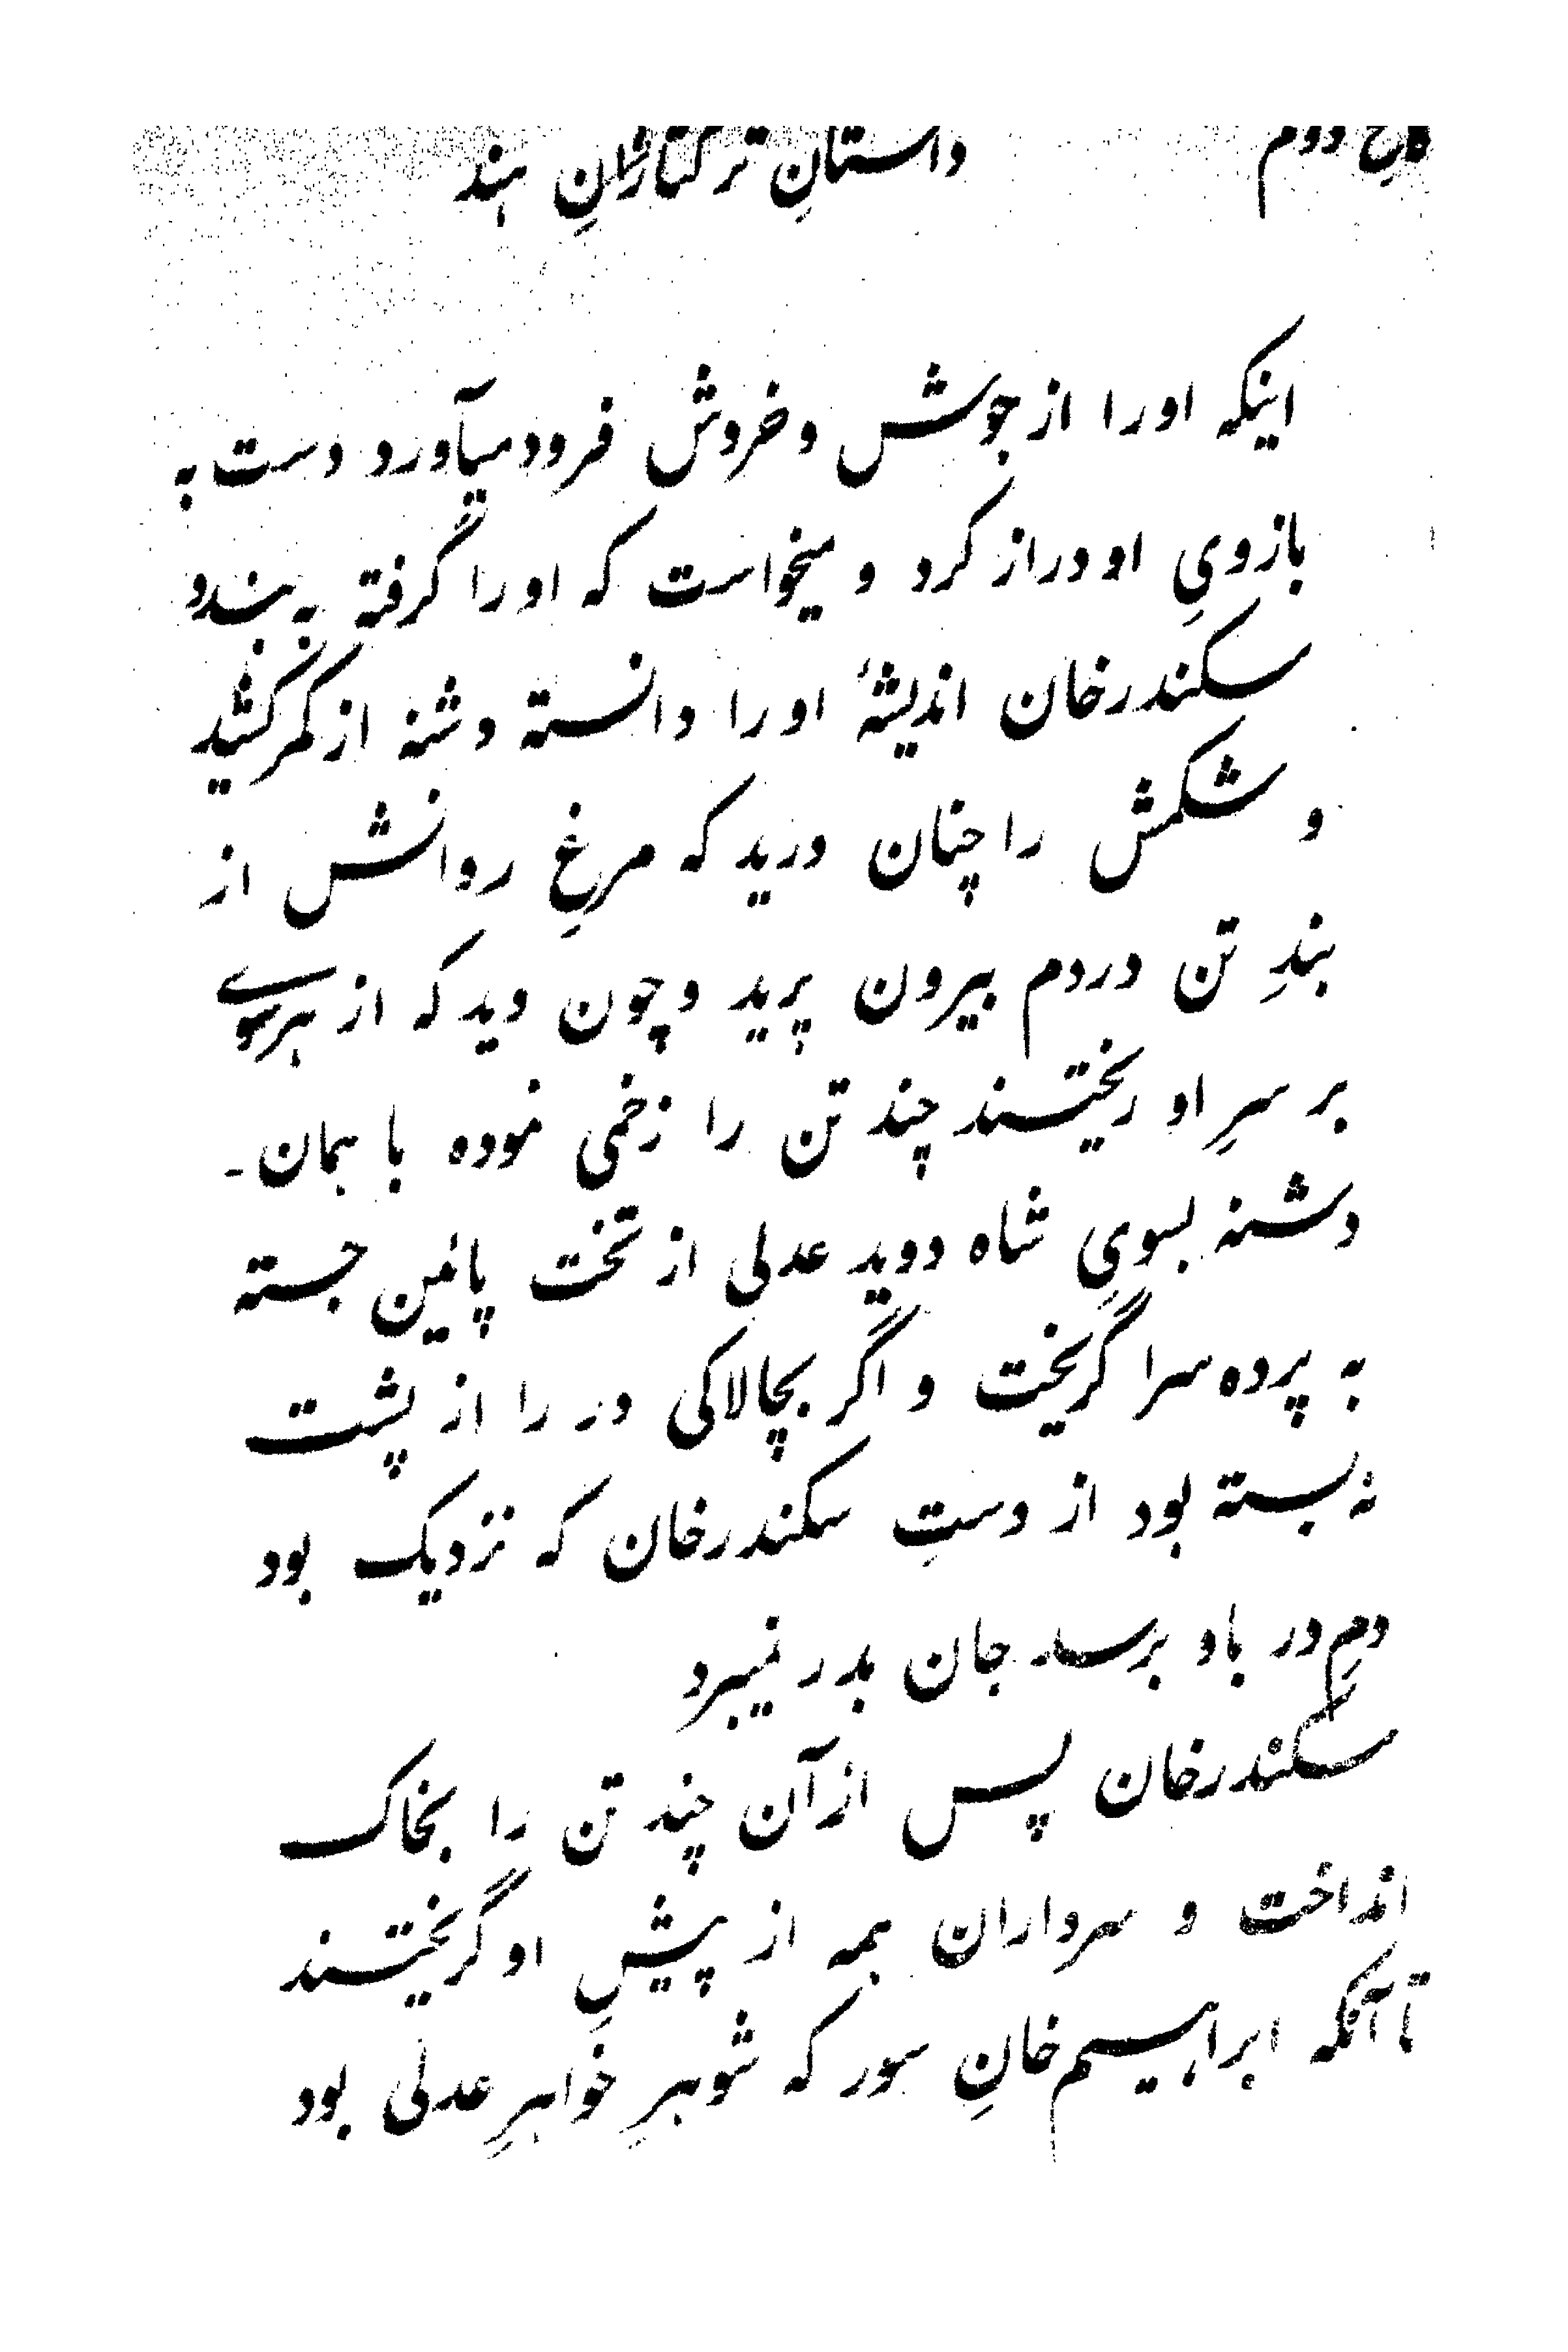 کاخ دوم داستانِ ترکتازانِ هند
اینکه اورا از جوش و خروش فرود میآورد دست به
بازویِ او دراز کرد و میخواست که اورا گرفته به بندد
سکندرخان اندیشهٔ اورا دانسته دشنه از کمر کشید
و شکمش را چنان درید که مرغِ روانش از
بندِ تن دردم بیرون پرید و چون دید که از هرسوے
بر سرِ او ریختند چند تن را زخمی نموده با همان۔
دشنه بسویِ شاه دوید عدلی از تخت پائین جسته
به پرده سرا گریخت و اگر بچالاکی در را از پشت
نه بسته بود از دستِ سکندرخان که نزدیک بود
دمِ در باو برسد جان بدر نمیبرد
سکندرخان پس ازآن چند تن را بخاک
انداخت و سرداران همه از پیشِ او گریختند
تا آنکه ابراهیم خانِ سور که شوهرِ خواهرِ عدلی بود